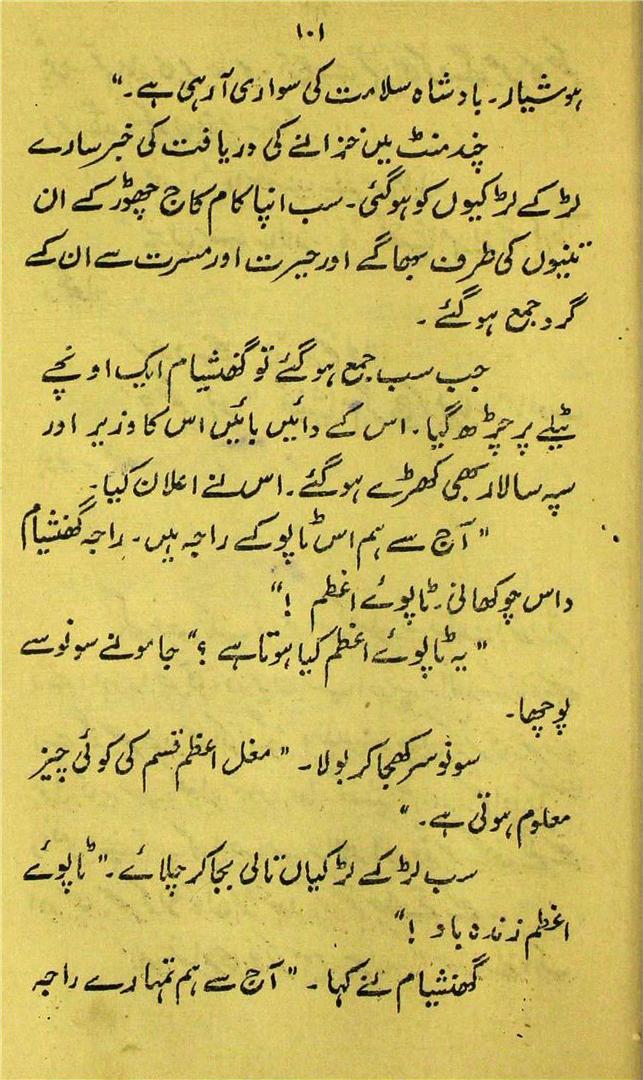 ۱۰۱
ہوشیار۔ بادشاہ سلامت کی سواری آ رہی ہے۔"
چند منٹ میں خزانے کی دریافت کی خبر سارے
لڑکے لڑکیوں کو ہو گئی۔ سب اپنا کام کاج چھوڑ کے ان
تینوں کی طرف بھاگے اور حیرت اور مسرت سے ان کے
گرد جمع ہو گئے۔
جب سب جمع ہو گئے تو گھنشیام ایک اونچے
ٹیلے پر چڑھ گیا۔ اس کے دائیں بائیں اس کا وزیر اور
سپہ سالار بھی کھڑے ہو گئے۔ اس نے اعلان کیا۔
"آج سے ہم اس ٹاپو کے راجہ ہیں۔ راجہ گھنشیام
داس چوکھانی۔ ٹاپوئے اعظم !"
"یہ ٹاپوئے اعظم کیا ہوتا ہے ؟" جامو نے سونو سے
پوچھا۔
سونو سر کھجا کر بولا۔ "مغل اعظم قسم کی کوئی چیز
معلوم ہوتی ہے۔"
سب لڑکے لڑکیاں تالی بجا کر چلائے۔ "ٹاپوئے
اعظم زندہ باد !"
گھنشیام نے کہا۔ "آج سے ہم تمہارے راجہ